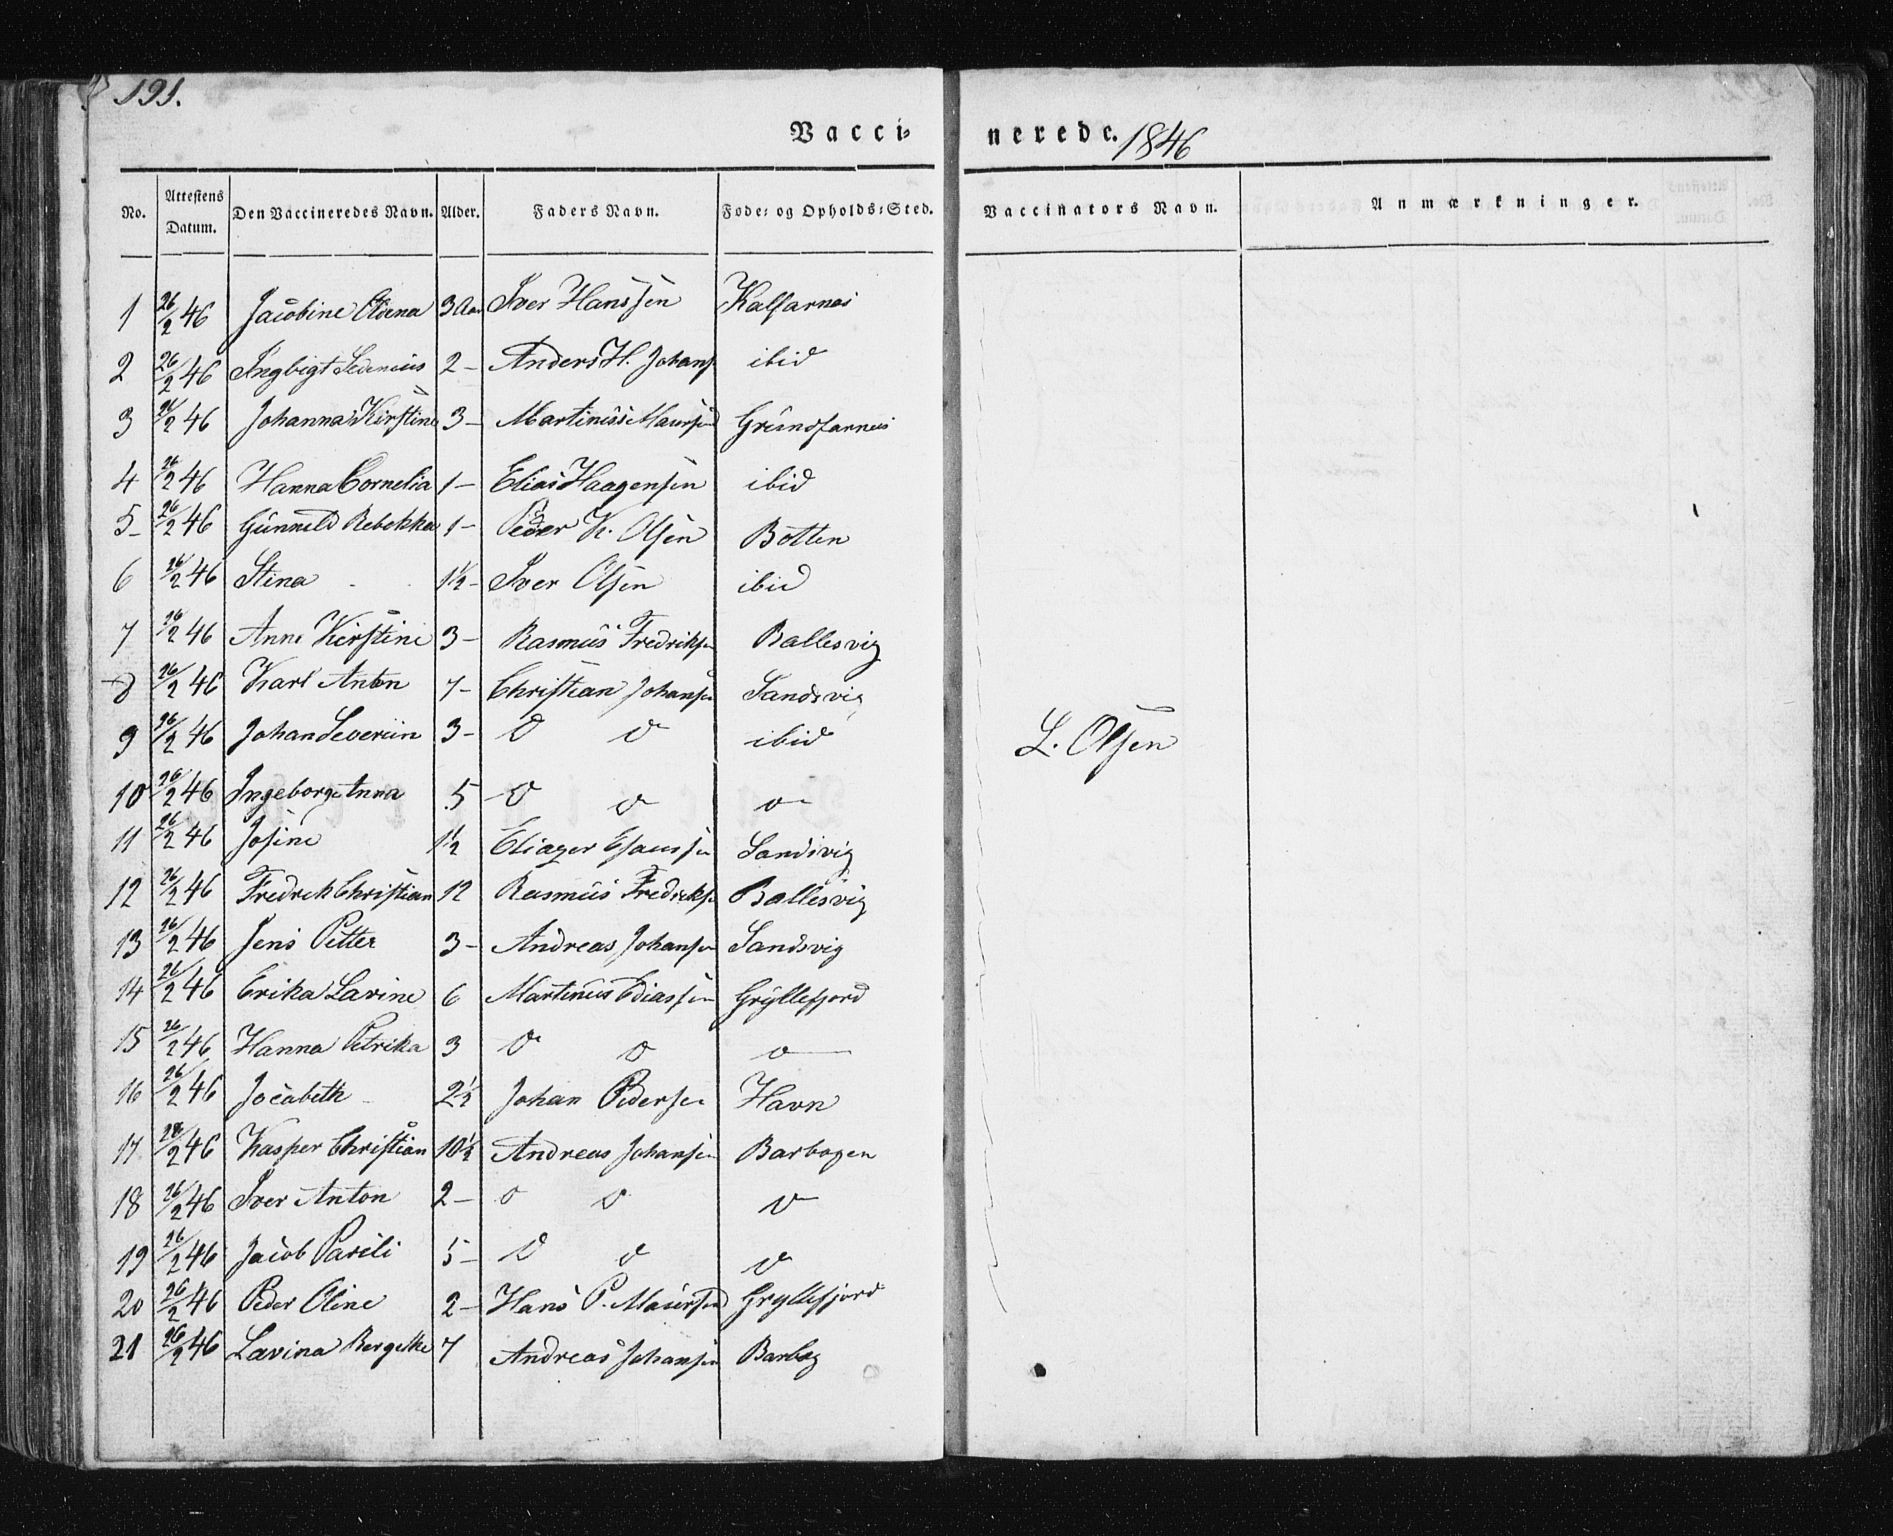 191.
Vacci- nerede. 1846
No. Attestens Datum. Den Vaccineredes Navn. Alder. Faders Navn. Føde- og Opholds-Sted. Vaccinators Navn. Anmærkninger.
1 26/2 46 Jacobine Olena 3 Aar Iver Hanssen Kalfarnes
2 26/2 46 Ingbigt Sedenius 2 - Anders H. Johans ibid
3 26/2 46 Johanna Kirstine 3 - Martinus Maursen Grunsfarnes
4 26/2 46 Hanna Cornelia 1 - Elias Haagensen ibid
5 - 26/2 46 Gunneld Rebekka 1 - Peder K. Olsen Botten
6 26/2 46 Stina 1½ - Iver Olsen ibid
7 26/2 46 Anne Kirstine 3 - Rasmus Fredriksen Ballesvig
8 26/2 46 Karl Anton 7 - Christian Johansen Sandsvig
9 26/2 46 Johan Severiin 3 - D D ibid L. Olsen
10 26/2 46 Ingeborg Anna 5 D D D
11 26/2 46 Josine 1½ Eliazer Esaussen Sandsvig
12 26/2 46 Fredrek Christian 12 Rasmus Fredreks Ballesvig
13 26/2 46 Jens Petter 3 - Andreas Johansen Sandsvig
14 26/2 46 Erika Lavine 6 Martinus Ediassen Gryllefjord
15 26/2 46 Hanna Petrika 3 D D D
16 26/2 46 Jocabeth 2½ Johan Pedersen Havn
17 26/2 46 Kasper Christian 10½ Andreas Johansen Barbogen
18 26/2 46 Iver Anton 2 - D D D
19 26/2 46 Jacob Pareli 5 - D D D
20 26/2 46 Peder Oline 2 - Hans P. Maursen Gryllefjord
21 26/2 46 Lavina Bergette 7 Andreas Johansen Barbog